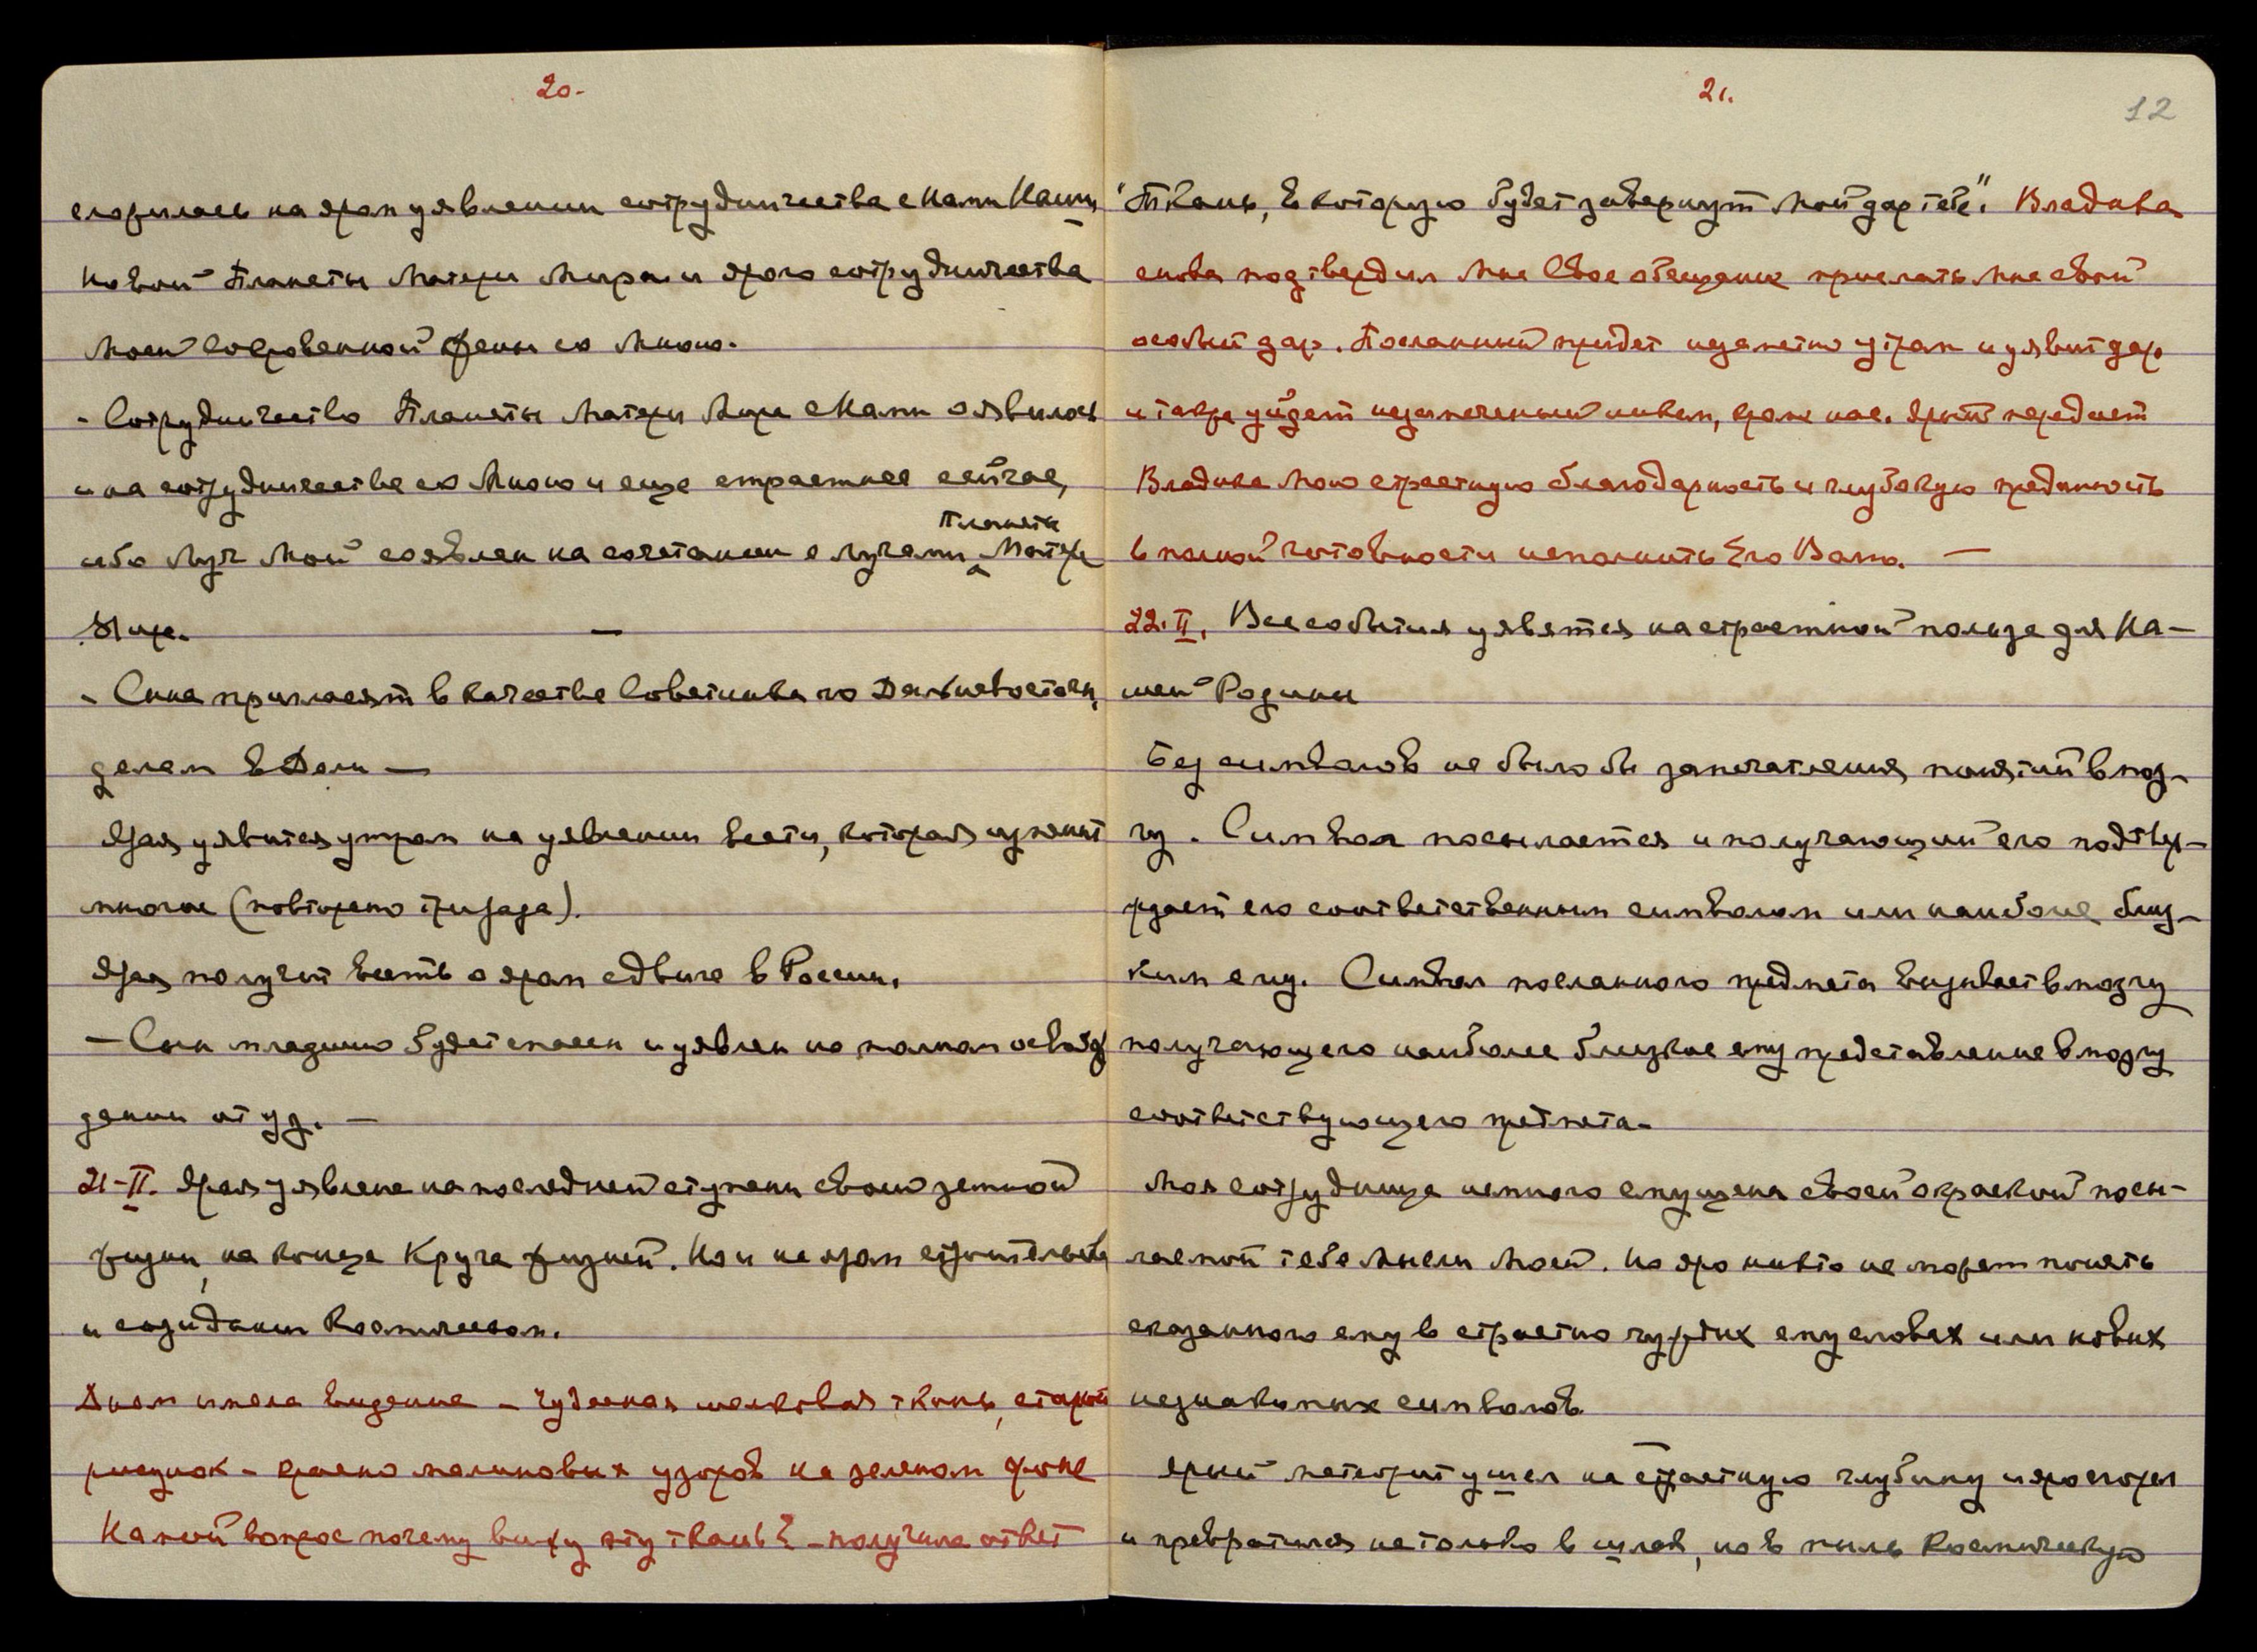 20.
сложилась на яром уявлении сотрудничества с Нами Нашей
новой Планеты Матери Мира и ярого сотрудничества
Моей Сокровенной Жены со Мною.
- Сотрудничество Планеты Матери Мира с Нами оявилось
и на сотрудничестве со Мною и еще страстнее сейчас,
ибо Луч Мой соявлен на сочетании с лучами Планеты Матери
Мира. —
- Сына пригласят в качестве Советника по Дальневосточ.
делам в Дели —
Ярая уявится утром на уявлении вести, которая изменит
многое (повторено три раза).
Ярая получит весть о яром сдвиге в России.
- Сын младший будет спасен и уявлен на полном освобож
дении от уз. —
21-II. Ярая уявлена на последней ступени своей земной
жизни, на конце Круга жизней. Но и на яром строительстве
и созидании Космическом.
Днем имела видение - чудесная шелковая ткань, старый
рисунок - красно малиновых узоров на зеленом фоне
На мой вопрос почему вижу эту ткань? - получила ответ
21.
12
"Ткань, в которую будет завернут Мой дар тебе". Владыка
снова подтвердил мне Свое обещание прислать мне свой
особый дар. Посланный придет незаметно утром и уявит дар
и также уйдет незамеченный никем, кроме нас. Ярый передает
Владыке мою страстную благодарность и глубокую преданность
в полной готовности исполнить Его Волю. —
22.II. Все события уявятся на страстной пользе для На-
шей Родины
Без символов не было бы запечатления понятий в моз-
гу. Символ посылается и получающий его подтвер-
ждает его соответственным символом или наиболее близ-
ким ему. Символ посланного предмета вызывает в мозгу
получающего наиболее близкое ему представление в мозгу
соответствующего предмета.
Моя сотрудница немного смущена своей окраской посы-
лаемой тебе Мысли Моей. Но яро никто не может понять
сказанного ему в страстно чуждых ему словах или новых
незнакомых символов
Ярый метеорит ушел на страстную глубину и яро сгорел
и превратился не только в шлак, но в пыль Космическую